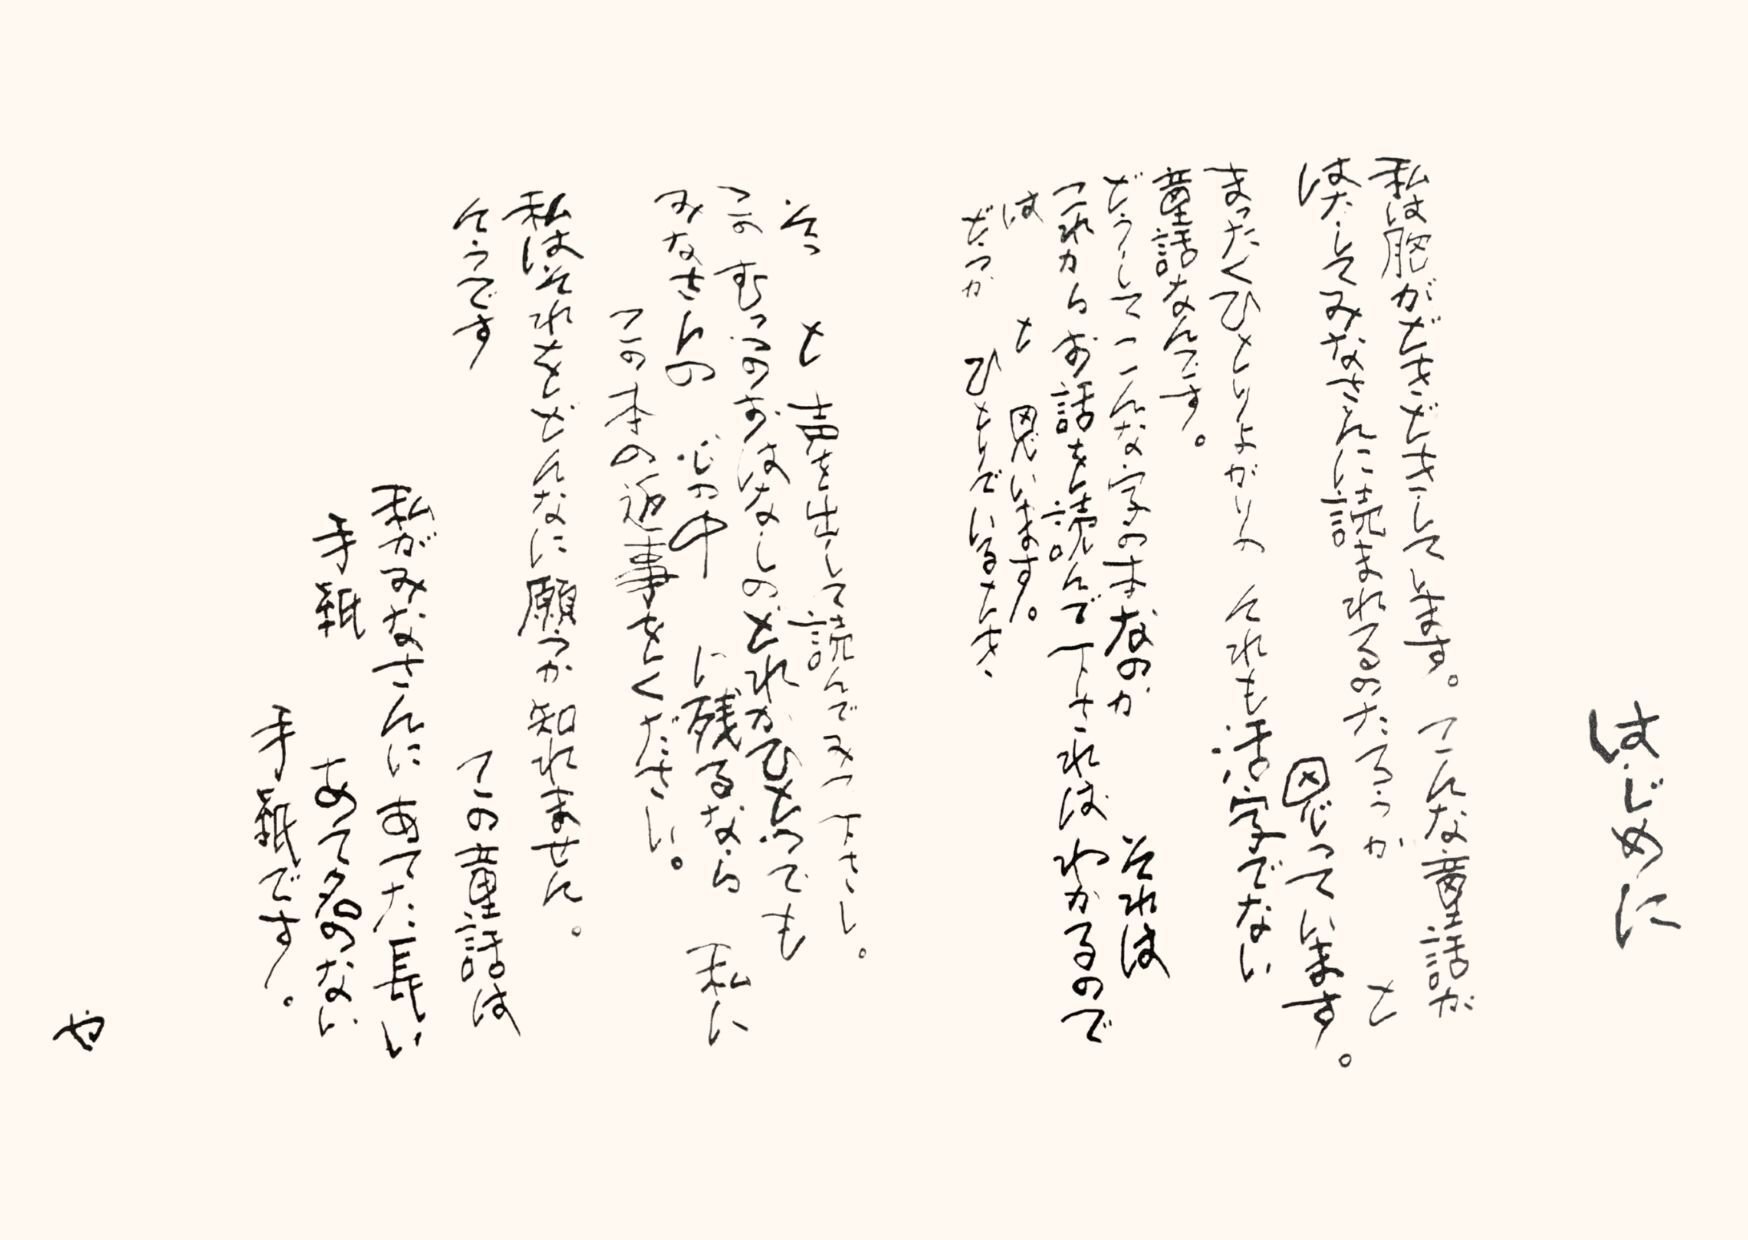 はじめに
私は胸がどきどきしています。こんな童話が
はたしてみなさんに読まれるのだろうか と
思っています。
まったくひとりよがりの それも活字でない
童話なんです。
どうしてこんな字の本なのか それは
これからお話を読んで下さればわかるので
は と 思います。
どうか ひとりでいるとき、
そっ と 声を出して読んでみて下さい。
この むっつのおはなしのどれかひとつでも
みなさんの 心の中 に残るなら 私に
この本の返事をください。
私はそれをどんなに願うか知れません。
そうです この童話は
私がみなさんに あてた長い
手紙 あて名のない
手紙です。
や